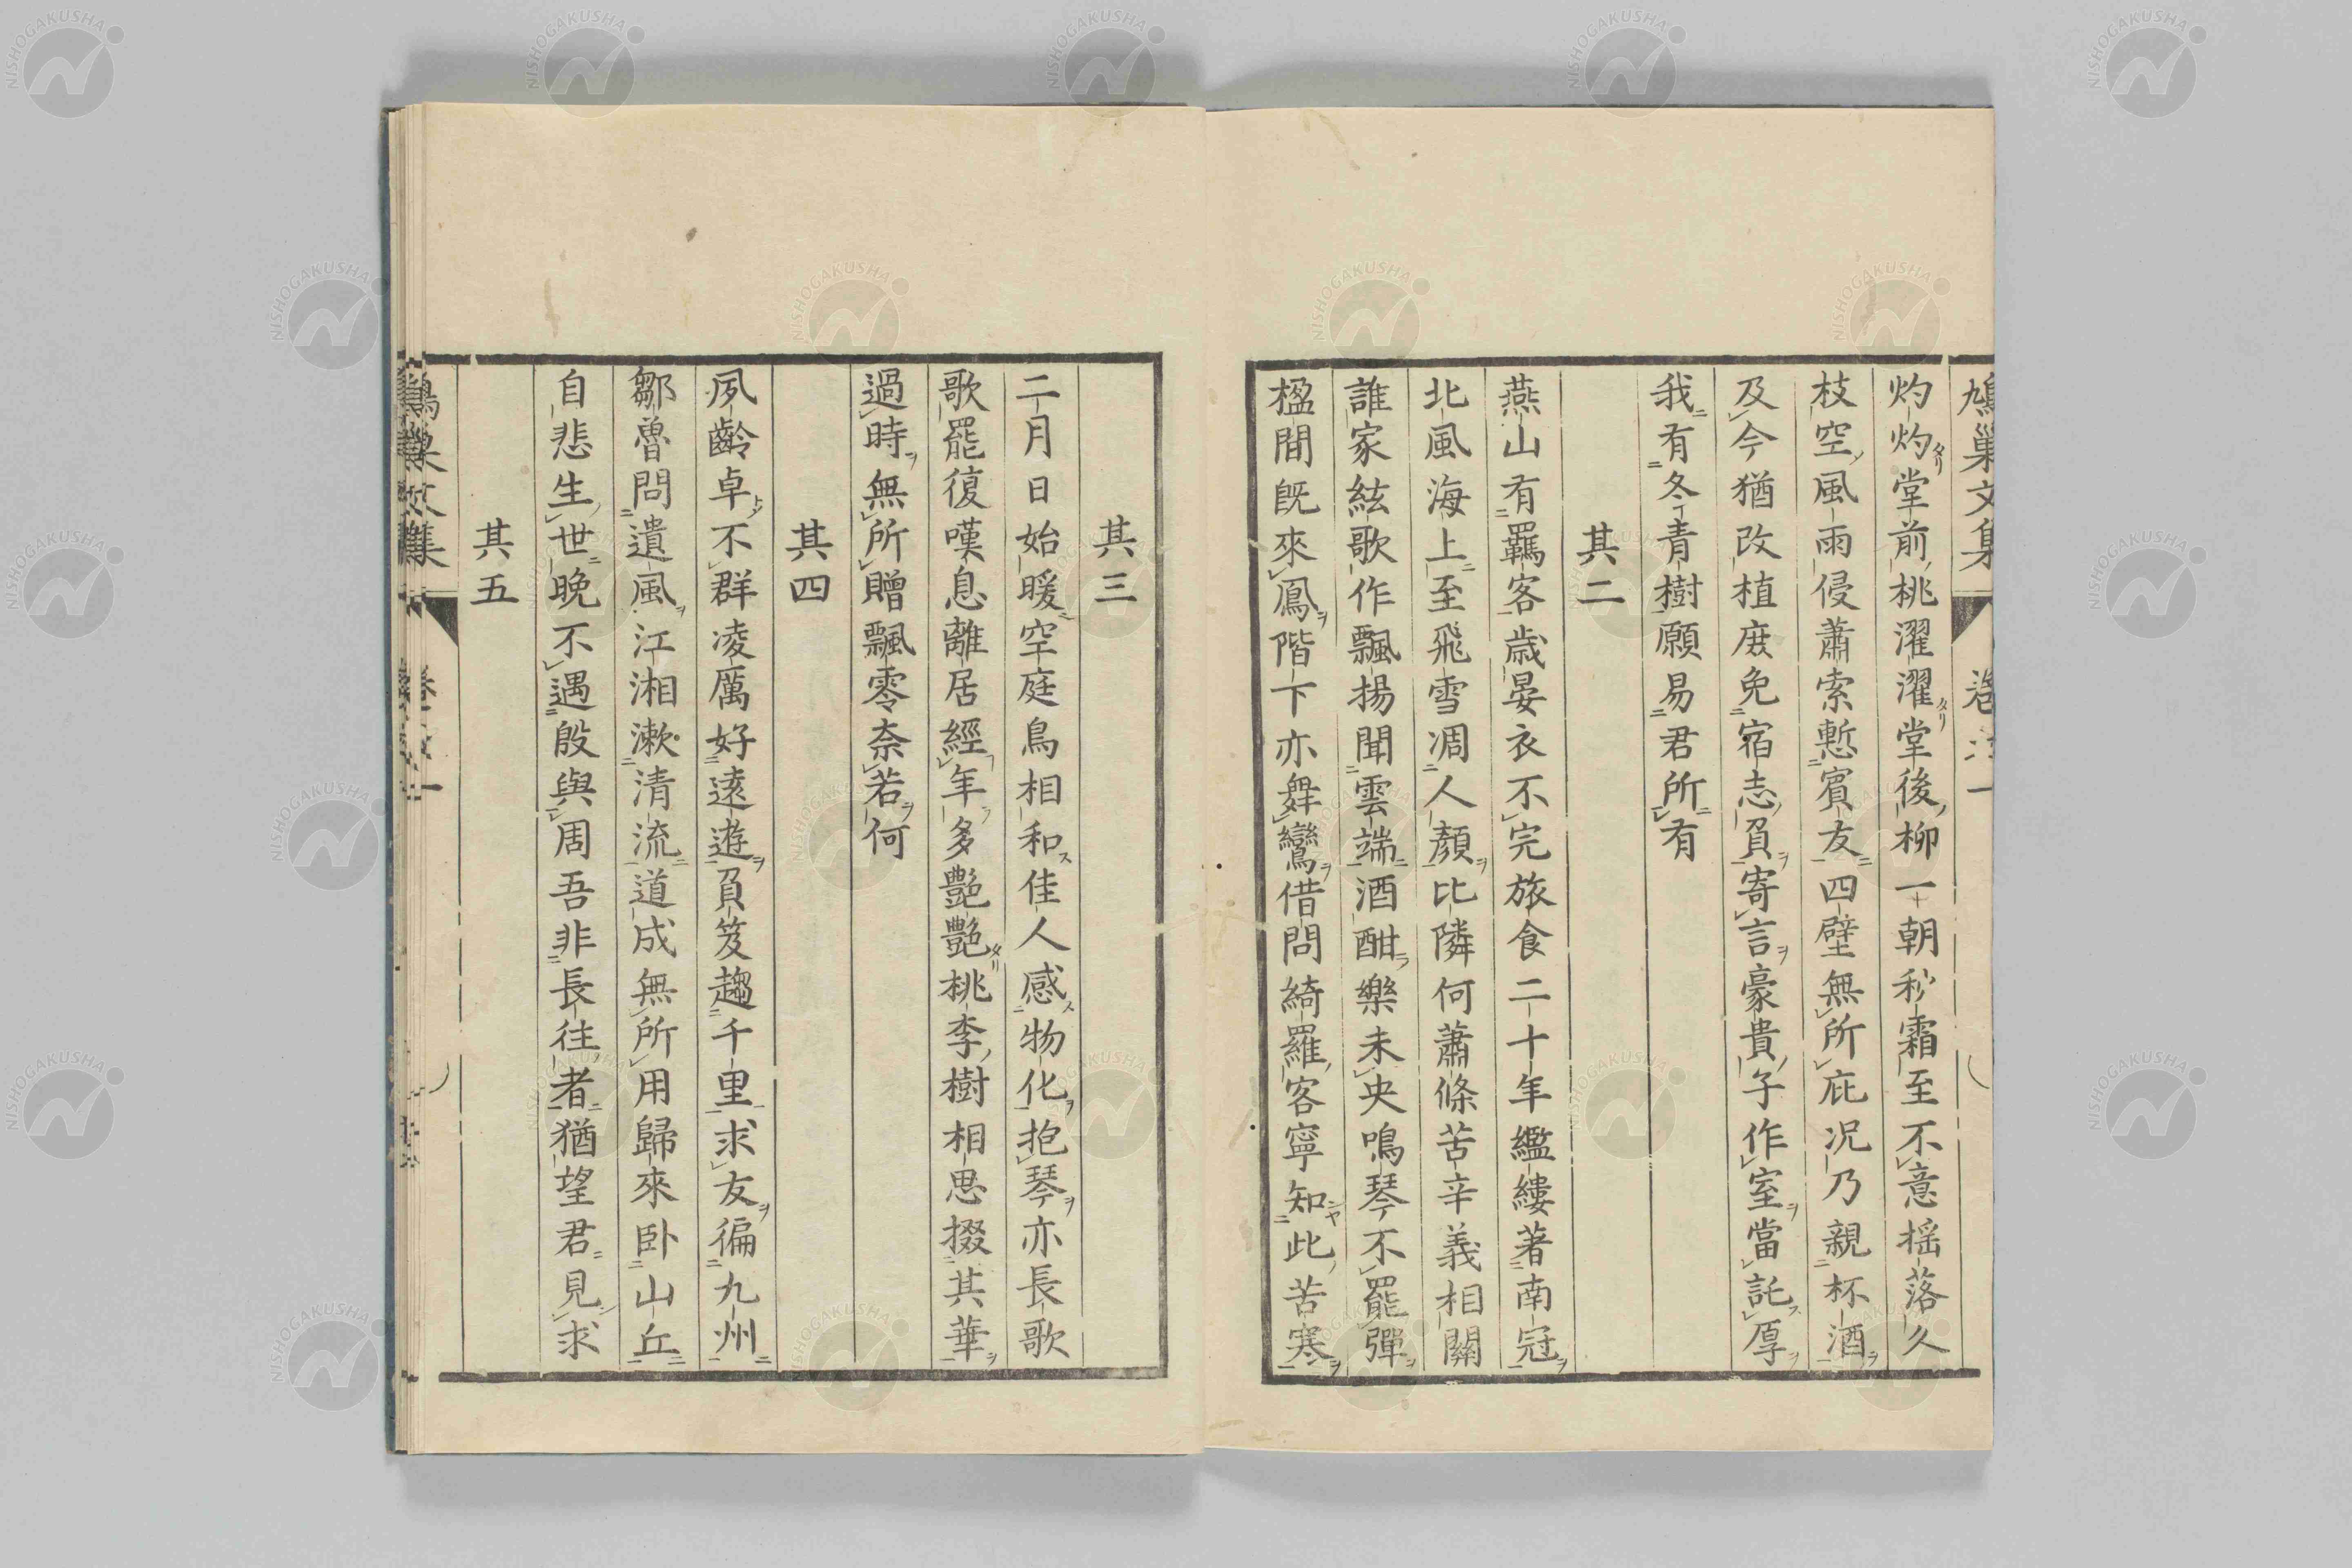 鳩巢文集
灼灼堂前桃濯濯堂後柳一朝秋霜至不意揺落久
枝空風雨侵蕭索慙賓友四壁無所庇况乃親杯酒
及今猶改植庻免宿志負寄言豪貴子作室當託厚
我有冬青樹願易君所有
其二
燕山有羈客歳晏衣不完旅食二十年繿縷著南冠
北風海上至飛雪凋人顔比隣何蕭條苦辛義相關
誰家絃歌作飄揚聞雲端酒酣樂未央鳴琴不罷彈
楹間既來鳳階下亦舞鸞借問綺羅客寧知此苦寒
其三
二月日始暖空庭鳥相和佳人感物化抱琴亦長歌
歌罷復嘆息離居經年多艶艶桃李樹相思掇其華
過時無所贈飄零奈若何
其四
夙齡卓不群凌厲好遠遊負笈趨千里求友徧九州
鄒魯問遺風江湘漱清流道成無所用歸來卧山丘
自悲生世晩不遇殷與周吾非長往者猶望君見求
其五
NISHOGAKUSHA